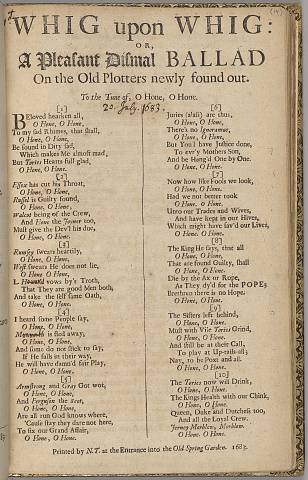 WHIG upon WHIG:
OR,
A Pleasant Dismal BALLAD
On the Old Plotters newly found out.
To the Tune of, O Hone, O Hone.
20. July. 1683.
[1]
BEloved hearken all,
O Hone, O Hone,
To my sad Rhimes, that shall,
O Hone, O Hone,
Be found in Ditty sad,
Which makes me almost mad,
But Tories Hearts full glad,
O Hone, O Hone.
[2]
Essex has cut his Throat,
O Hone, O Hone,
Russel is Guilty found,
O Hone, O Hone,
Walcot being of the Crew,
And Hone the Joyner too,
Must give the Dev'l his due,
O Hone, O Hone.
[3]
Rumsey swears heartily,
O Hone, O Hone,
West swears He does not lie,
O Hone, O Hone,
L. vows by's Troth,
That They are good Men both,
And take the self same Oath,
O Hone, O Hone.
[4]
I heard some People say,
O Hone, O Hone,
is fled away,
O Hone, O Hone,
And some do not stick to say,
If He falls in their way,
He will have damn'd fair Play,
O Hone, O Hone.
[5]
Armstrong and Gray Got wot,
O Hone, O Hone,
And Ferguson the Scot,
O Hone, O Hone,
Are all run God knows where,
'Cause stay they dare not here,
To fix our Grand Affair,
O Hone, O Hone.
[6]
Juries (alas!) are thus,
O Hone, O Hone,
There's no Ignoramus,
O Hone, O Hone,
But You'l have Justice done,
To ev'ry Mothers Son,
And be Hang'd One by One.
O Hone, O Hone.
[7]
Now how like Fools we look,
O Hone, O Hone,
Had we not better took
O Hone, O Hone,
Unto our Trades and Wives,
And have kept in our Hives,
Which might have sav'd our Lives,
O Hone, O Hone.
[8]
The King He says, that all
O Hone, O Hone,
That are found Guilty, shall
O Hone, O Hone,
Die by the Ax or Rope,
As They dy'd for the POPE;
Brethren there is no Hope,
O Hone, O Hone.
[9]
The Sisters left behind,
O Hone, O Hone,
Must with Vile Tories Grind,
O Hone, O Hone,
And still be at their Call,
To play at Up-tails-all;
Nay, to be Poxt and all.
O Hone, O Hone.
[10]
The Tories now will Drink,
O Hone, O Hone,
The Kings Health with our Chink,
O Hone, O Hone,
Queen, Duke and Dutchess too,
And all the Loyal Crew.
Jerney Morblew, Morblew.
O Hone, O Hone.
Printed by N.T. at the Entrance into the Old Spring Garden. 1683.